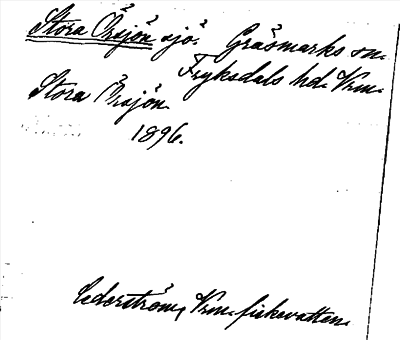 Stora Örsjön sjö i Gräsmarks sn.
Fryksdals hd. Vrm.
Stora Örsjön
1896.
Cederström, Vrm. fiskevatten.